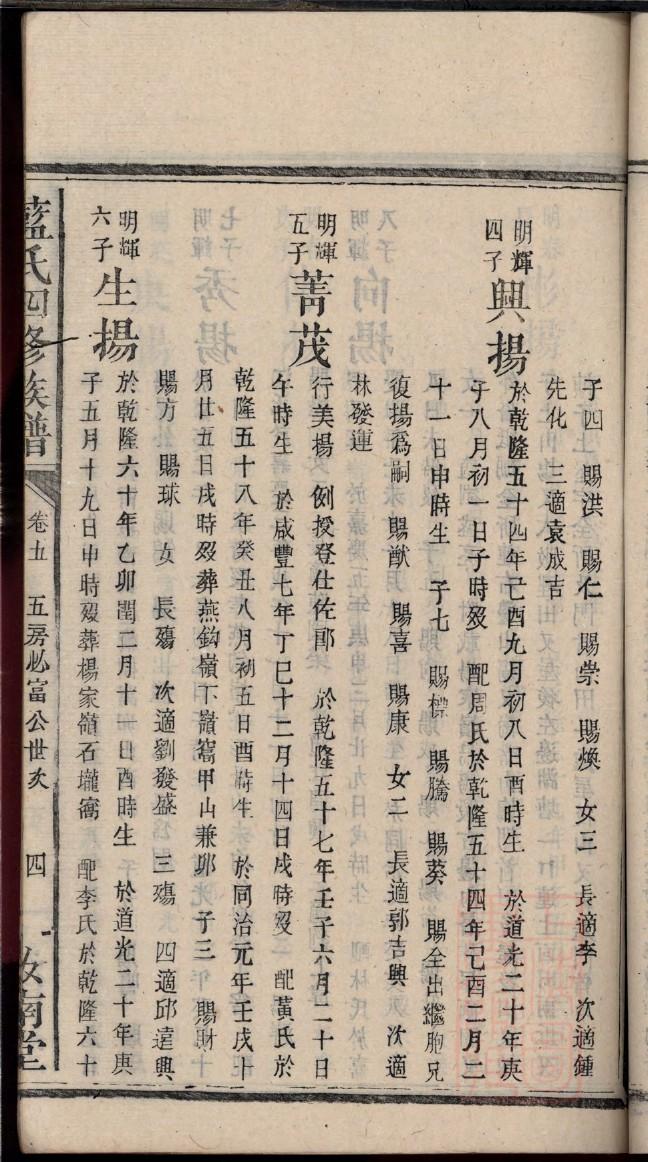 子四 賜洪 賜仁 賜崇 賜煥 女三 長適李 次適鍾
先化 三適袁成吉
明輝四子 興揚 於乾隆五十四年己酉九月初八日酉時生 於道光二十年庚
子八月初一日子時歿 配周氏於乾隆五十四年己酉二月二
十一日申時生 子七 賜標 賜騰 賜葵 賜全出繼胞兄
復揚爲嗣 賜猷 賜喜 賜康 女二 長適郭吉興 次適
林發運
明輝五子 菁茂 行美揚 例授登仕佐郎 於乾隆五十七年壬子六月二十日
午時生 於咸豐七年丁巳十二月十四日戌時歿 配黃氏於
乾隆五十八年癸丑八月初五日酉時生 於同治元年壬戌十
月廿五日戌時歿葬燕鈎嶺下嶺窩甲山兼卯 子三 賜財
賜方 賜球 女 長殤 次適劉發盛 三殤 四適邱達興
明輝六子 生揚 於乾隆六十年乙卯閏二月十一日酉時生 於道光二十年庚
子五月十九日申時歿葬楊家嶺石壠窩 配李氏於乾隆六十
藍氏四修族譜 卷五 五房必富公世系 四 汝南堂